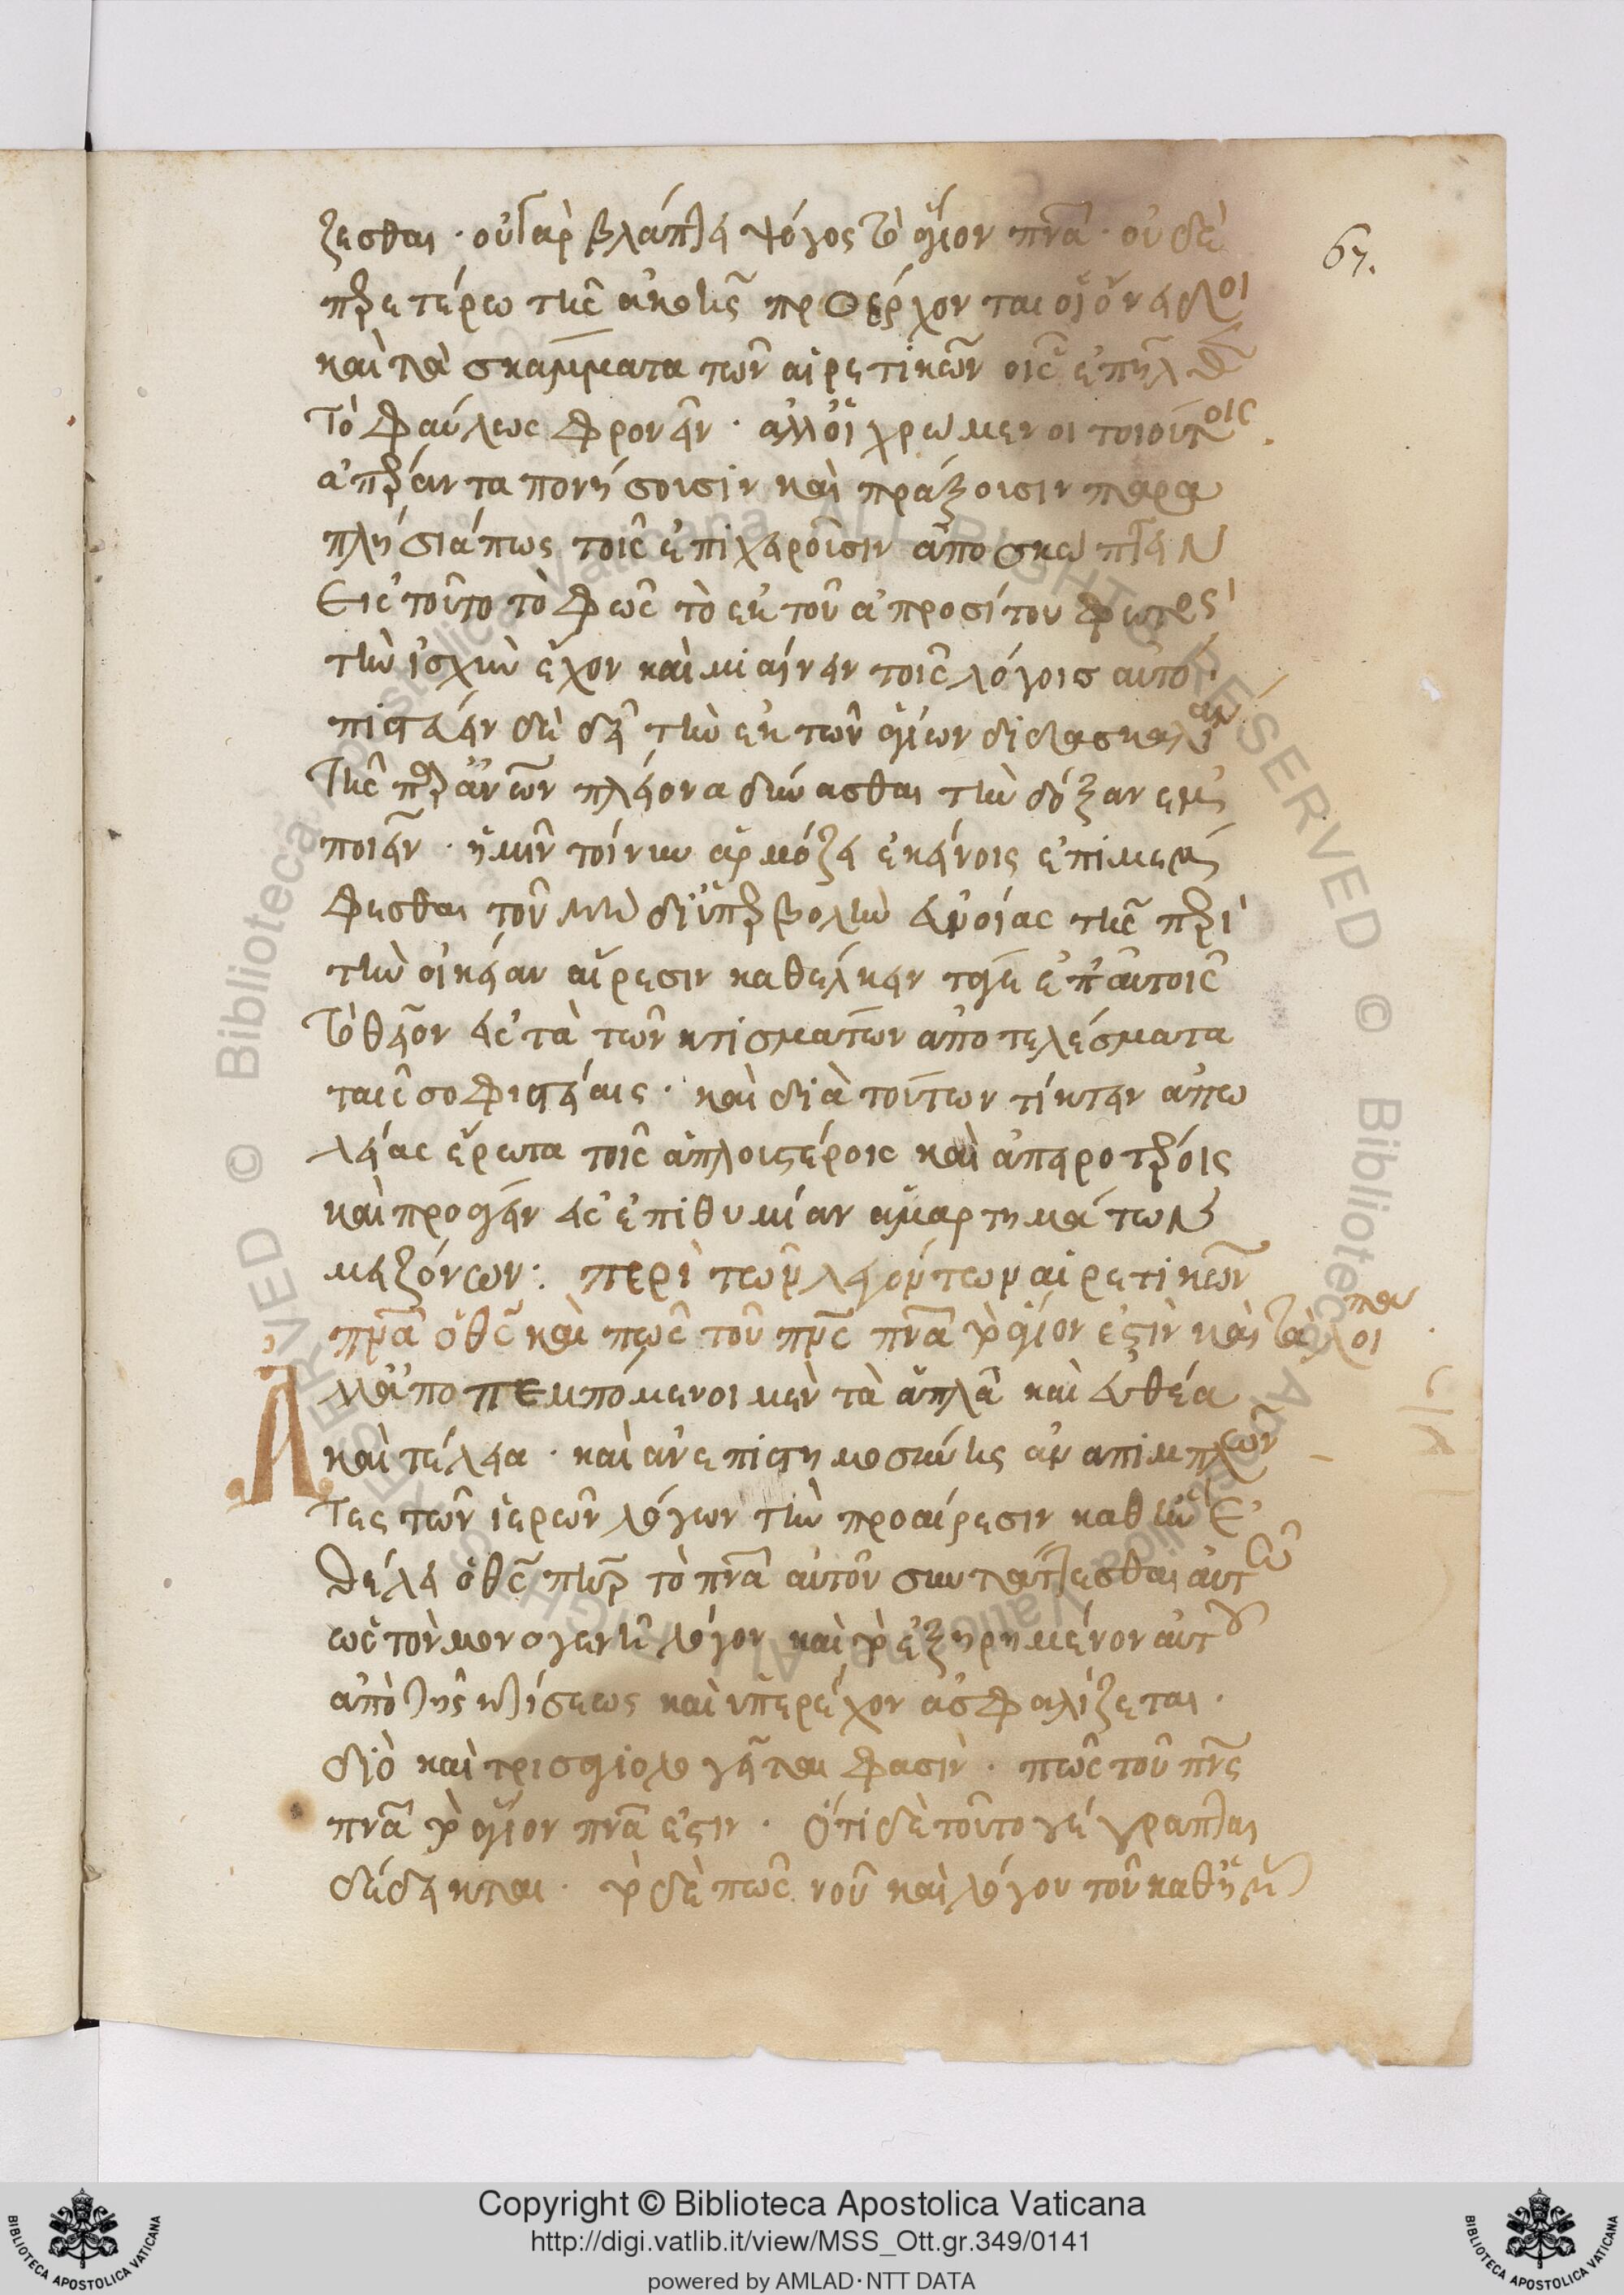 67.
ζεσθαι · οὐ γὰρ βλάπτει ψόγος τὸ ἅγιον πνα · οὐδὲ
περετέρω τῆς ἀκοῆς προέρχονται οἱ ὀνειδοι
καὶ τὰ σκαμματα τῶν αἱρετικῶν οἷς ἐπῆλθ
τὸ φαύλως φρονεῖν · ἀλλ' οἱ χρώμενοι τοιούτοις
ἀπεράντα πονήσουσιν καὶ πράξουσιν παρα
πλήσιά πως τοῖς ἐπιχειροῦσιν ἀποσκώπτειν
εἰς τοῦτο τὸ φῶς τὸ ἐκ τοῦ ἀπροσίτου φωτὸς
τὴν ἰσχὺν ἔχον καὶ μιαίνειν τοῖς λόγοις αὐτό
πιστεύειν δὲ δεῖ τὴν ἐκ τῶν ἁγίων διδασκαλίαν
τῆς περὶ ὧν πλείονα δύνασθαι τὴν δόξαν εμ
ποιεῖν · ἡμῖν τοίνυν ἁρμόζει ἐκείνοις ἐπιμέμ
φεσθαι τοῦ μὴ δι' ὑπερβολὴν εὐνοίας τῆς περὶ
τὴν οἰκείαν αἵρεσιν καθέλκειν τόγε ἐπ' αὐτοῖς
τὸ θεῖον εἰς τὰ τῶν κτισμάτων ἀποτελέσματα
ταῖς σοφιστείαις · καὶ διὰ τούτων τίκτειν ἀπω
λείας ἔρωτα τοῖς ἁπλουστέροις καὶ ἀπειροτέροις
καὶ προάγειν εἰς ἐπιθυμίαν ἁμαρτημάτων
μειζόνων : περὶ τῶν λεγόντων αἱρετικῶν
πνα ὁ θς καὶ πῶς τοῦ πνς πνα τὸ ἅγιον ἐστὶν καὶ τὰ λοιπα
Ἀλλ' ἀποπεμπόμενοι μὲν τὰ ἁπλᾶ καὶ εὐθέα
καὶ τέλεια · καὶ ἀνεπιστημοσύνης ἀναπιμπλῶν
τες τῶν ἱερῶν λόγων τὴν προαίρεσιν καθ' ἣν ἐ
θέλει ὁ θς πηρ τὸ πνα αὐτοῦ συντάττεσθαι αὐτῶ
ὡς τὸν μονογενῆ λόγον καὶ τὸ ἐξηρημένον αὐτοῦ
ἀπὸ τῆς κτίσεως καὶ ὑπερέχον ἀσφαλίζεται ·
διὸ καὶ τρισαγιολογεῖται φασὶν · πῶς τοῦ πνς
πνα τὸ ἅγιον πνα ἐστιν · ὅτι δὲ τοῦτο γέγραπται
δέδεικται · τὸ δὲ πῶς νοῦ καὶ λόγου τοῦ καθ' ἡμ
Copyright © Biblioteca Apostolica Vaticana
http://digi.vatlib.it/view/MSS_Ott.gr.349/0141
powered by AMLAD·NTT DATA